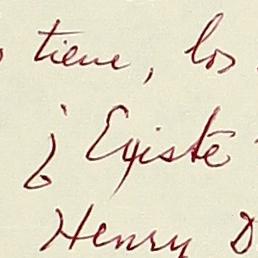 tiene, los
¿ Existe
Henry D